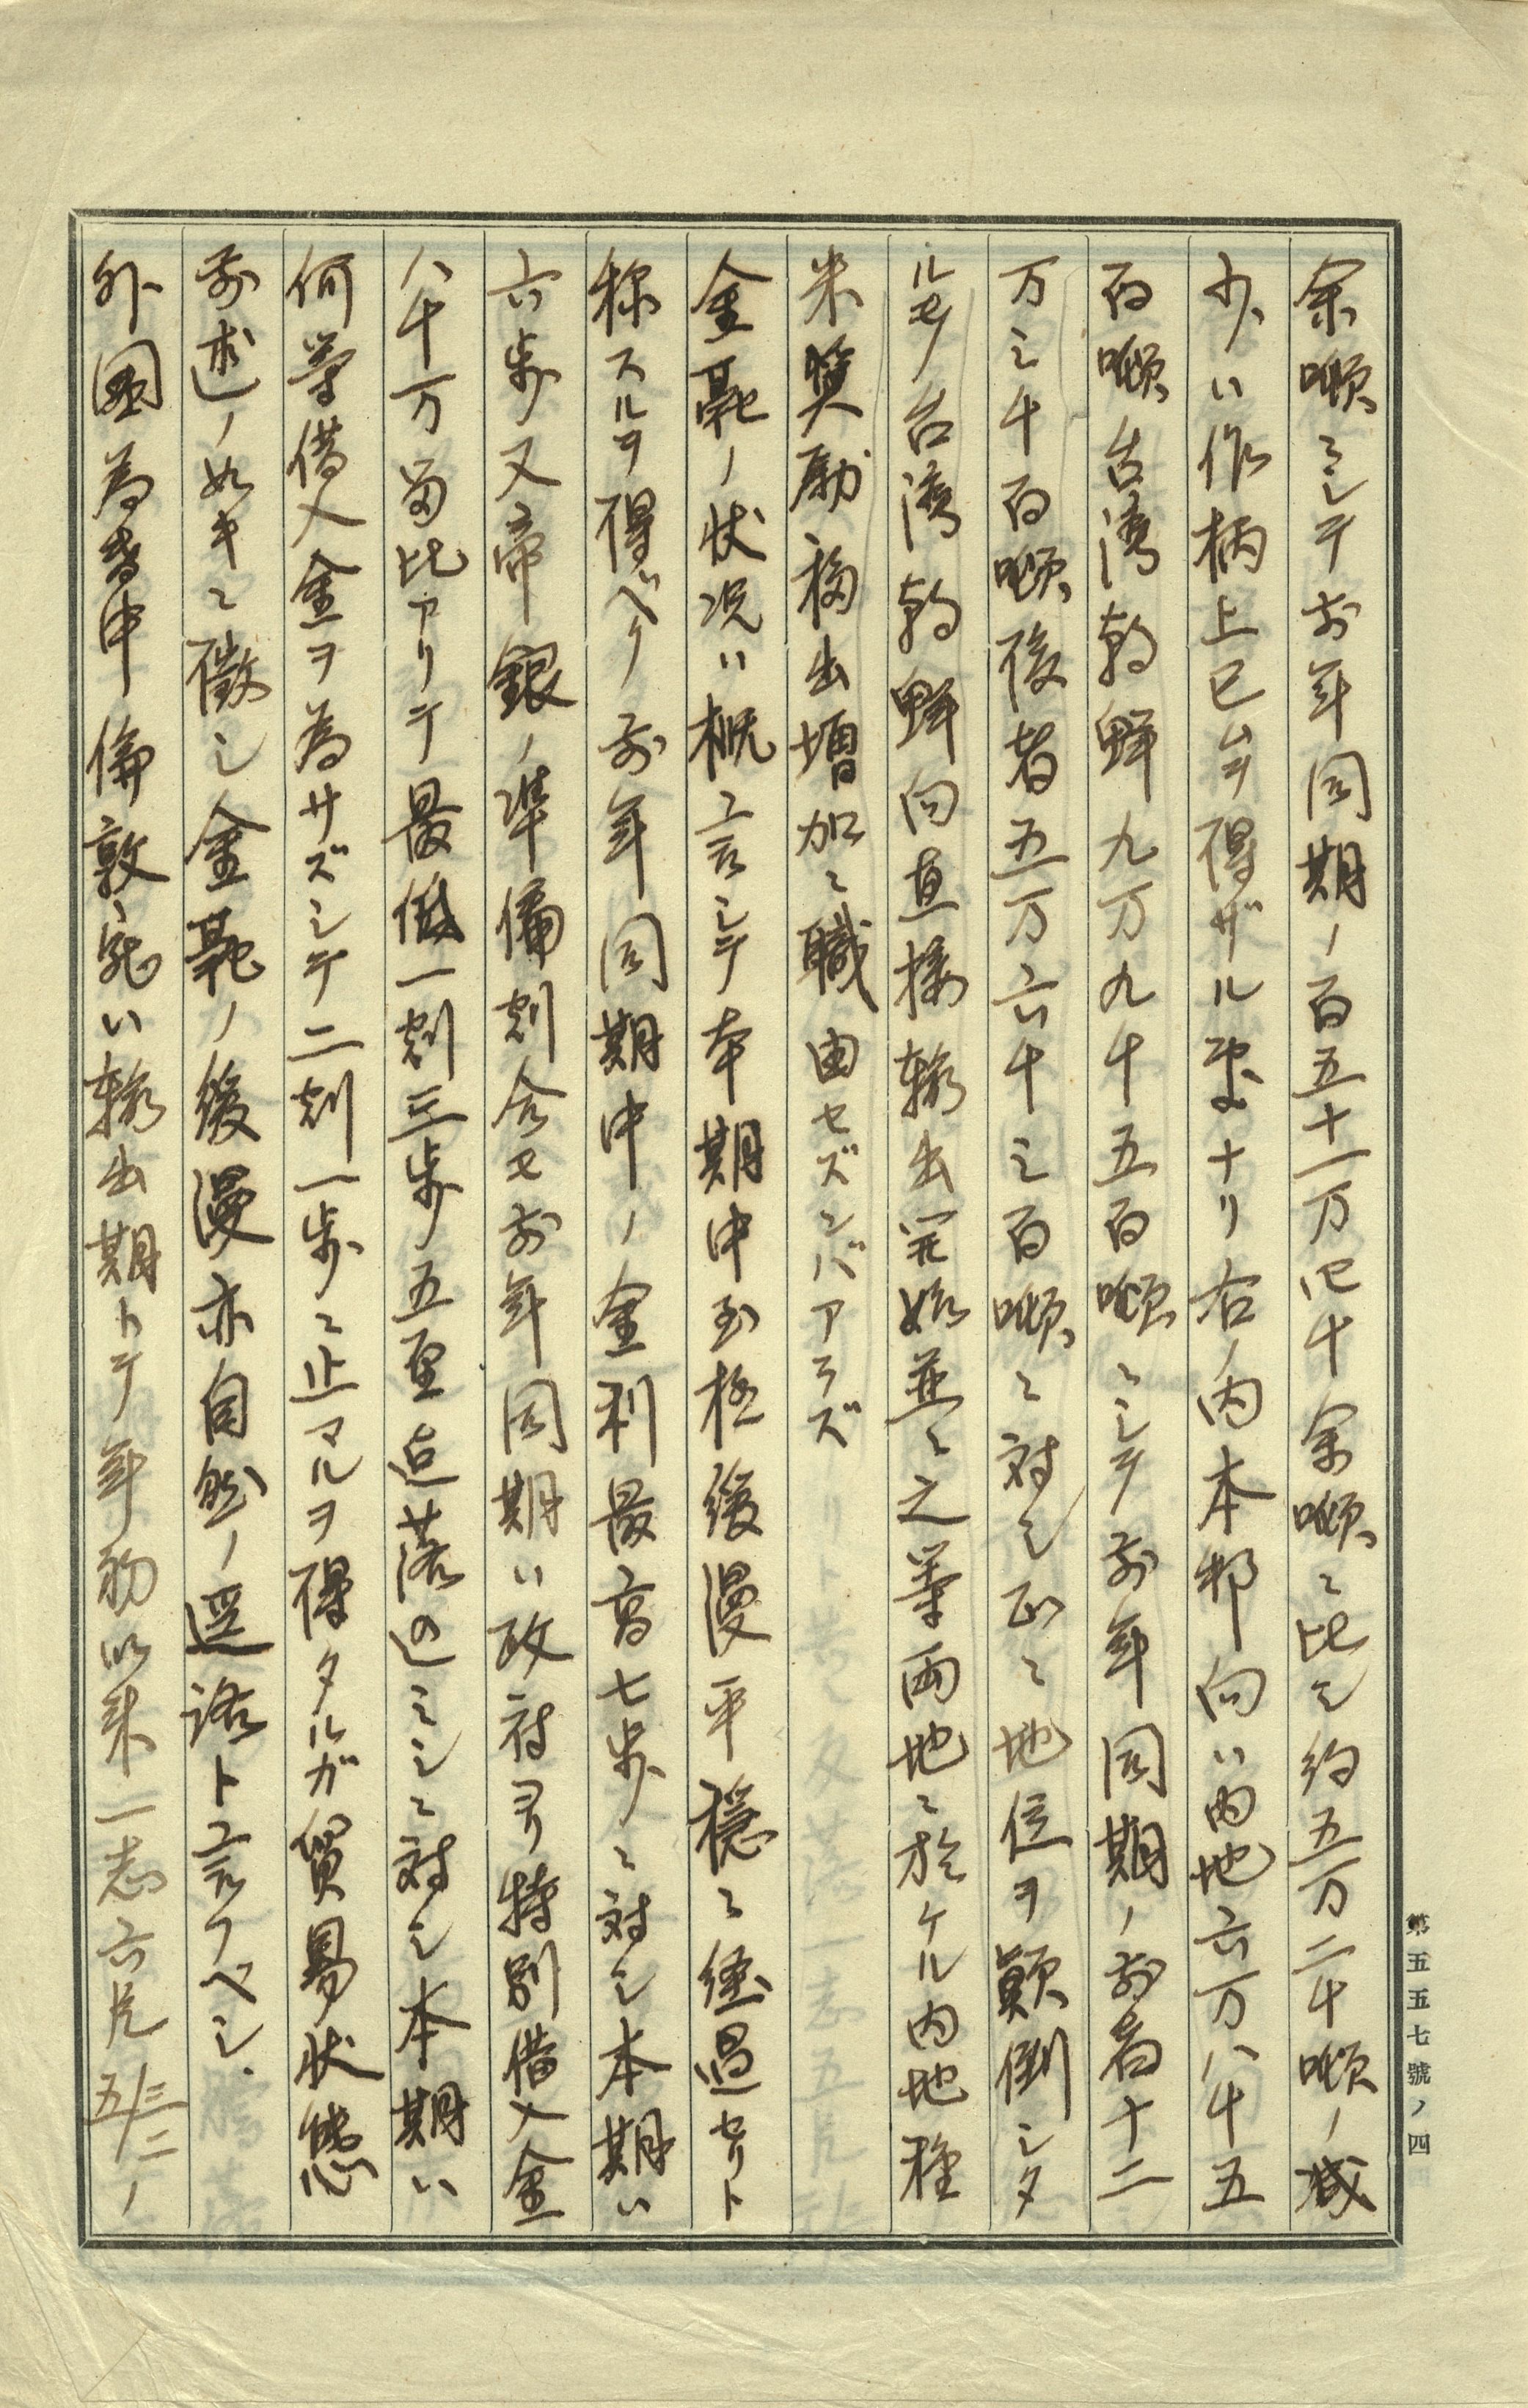 余噸ニシテ前年同期ノ百五十一万四千余噸ニ比シ約五万二千噸ノ減
少ハ作柄上已ムヲ得ザル事ナリ右ノ内本邦向ハ内地六万八千五
百噸台湾朝鮮九万九千五百噸ニシテ前年同期ノ前者十二
万三千百噸後者五万六千三百噸ニ対シ正ニ地位ヲ顛倒シタ
ルモノ台湾朝鮮向直接輸出開始並ニ之等両地ニ於ケル内地種
米奨励移出増加ニ職由セズンバアラズ
金融ノ状況ハ概言シテ本期中至極緩漫平穏ニ経過セリト
称スルヲ得ベク前年同期中ノ金利最高七歩ニ対シ本期ハ
六歩又帝銀ノ準備割合モ前年同期ハ政府ヨリ特別借入金
八千万留比アリテ最低一割三歩五厘迄落込ミシニ対シ本期ハ
何等借入金ヲ為サズシテ二割一歩ニ止マルヲ得タルガ貿易状態
前述ノ如キニ徴シ金融ノ緩漫亦自然ノ道諾ト言フベシ
外国為替中倫敦宛ハ輸出期トテ年初以来一志六片五/三二ノ
第五五七號ノ四